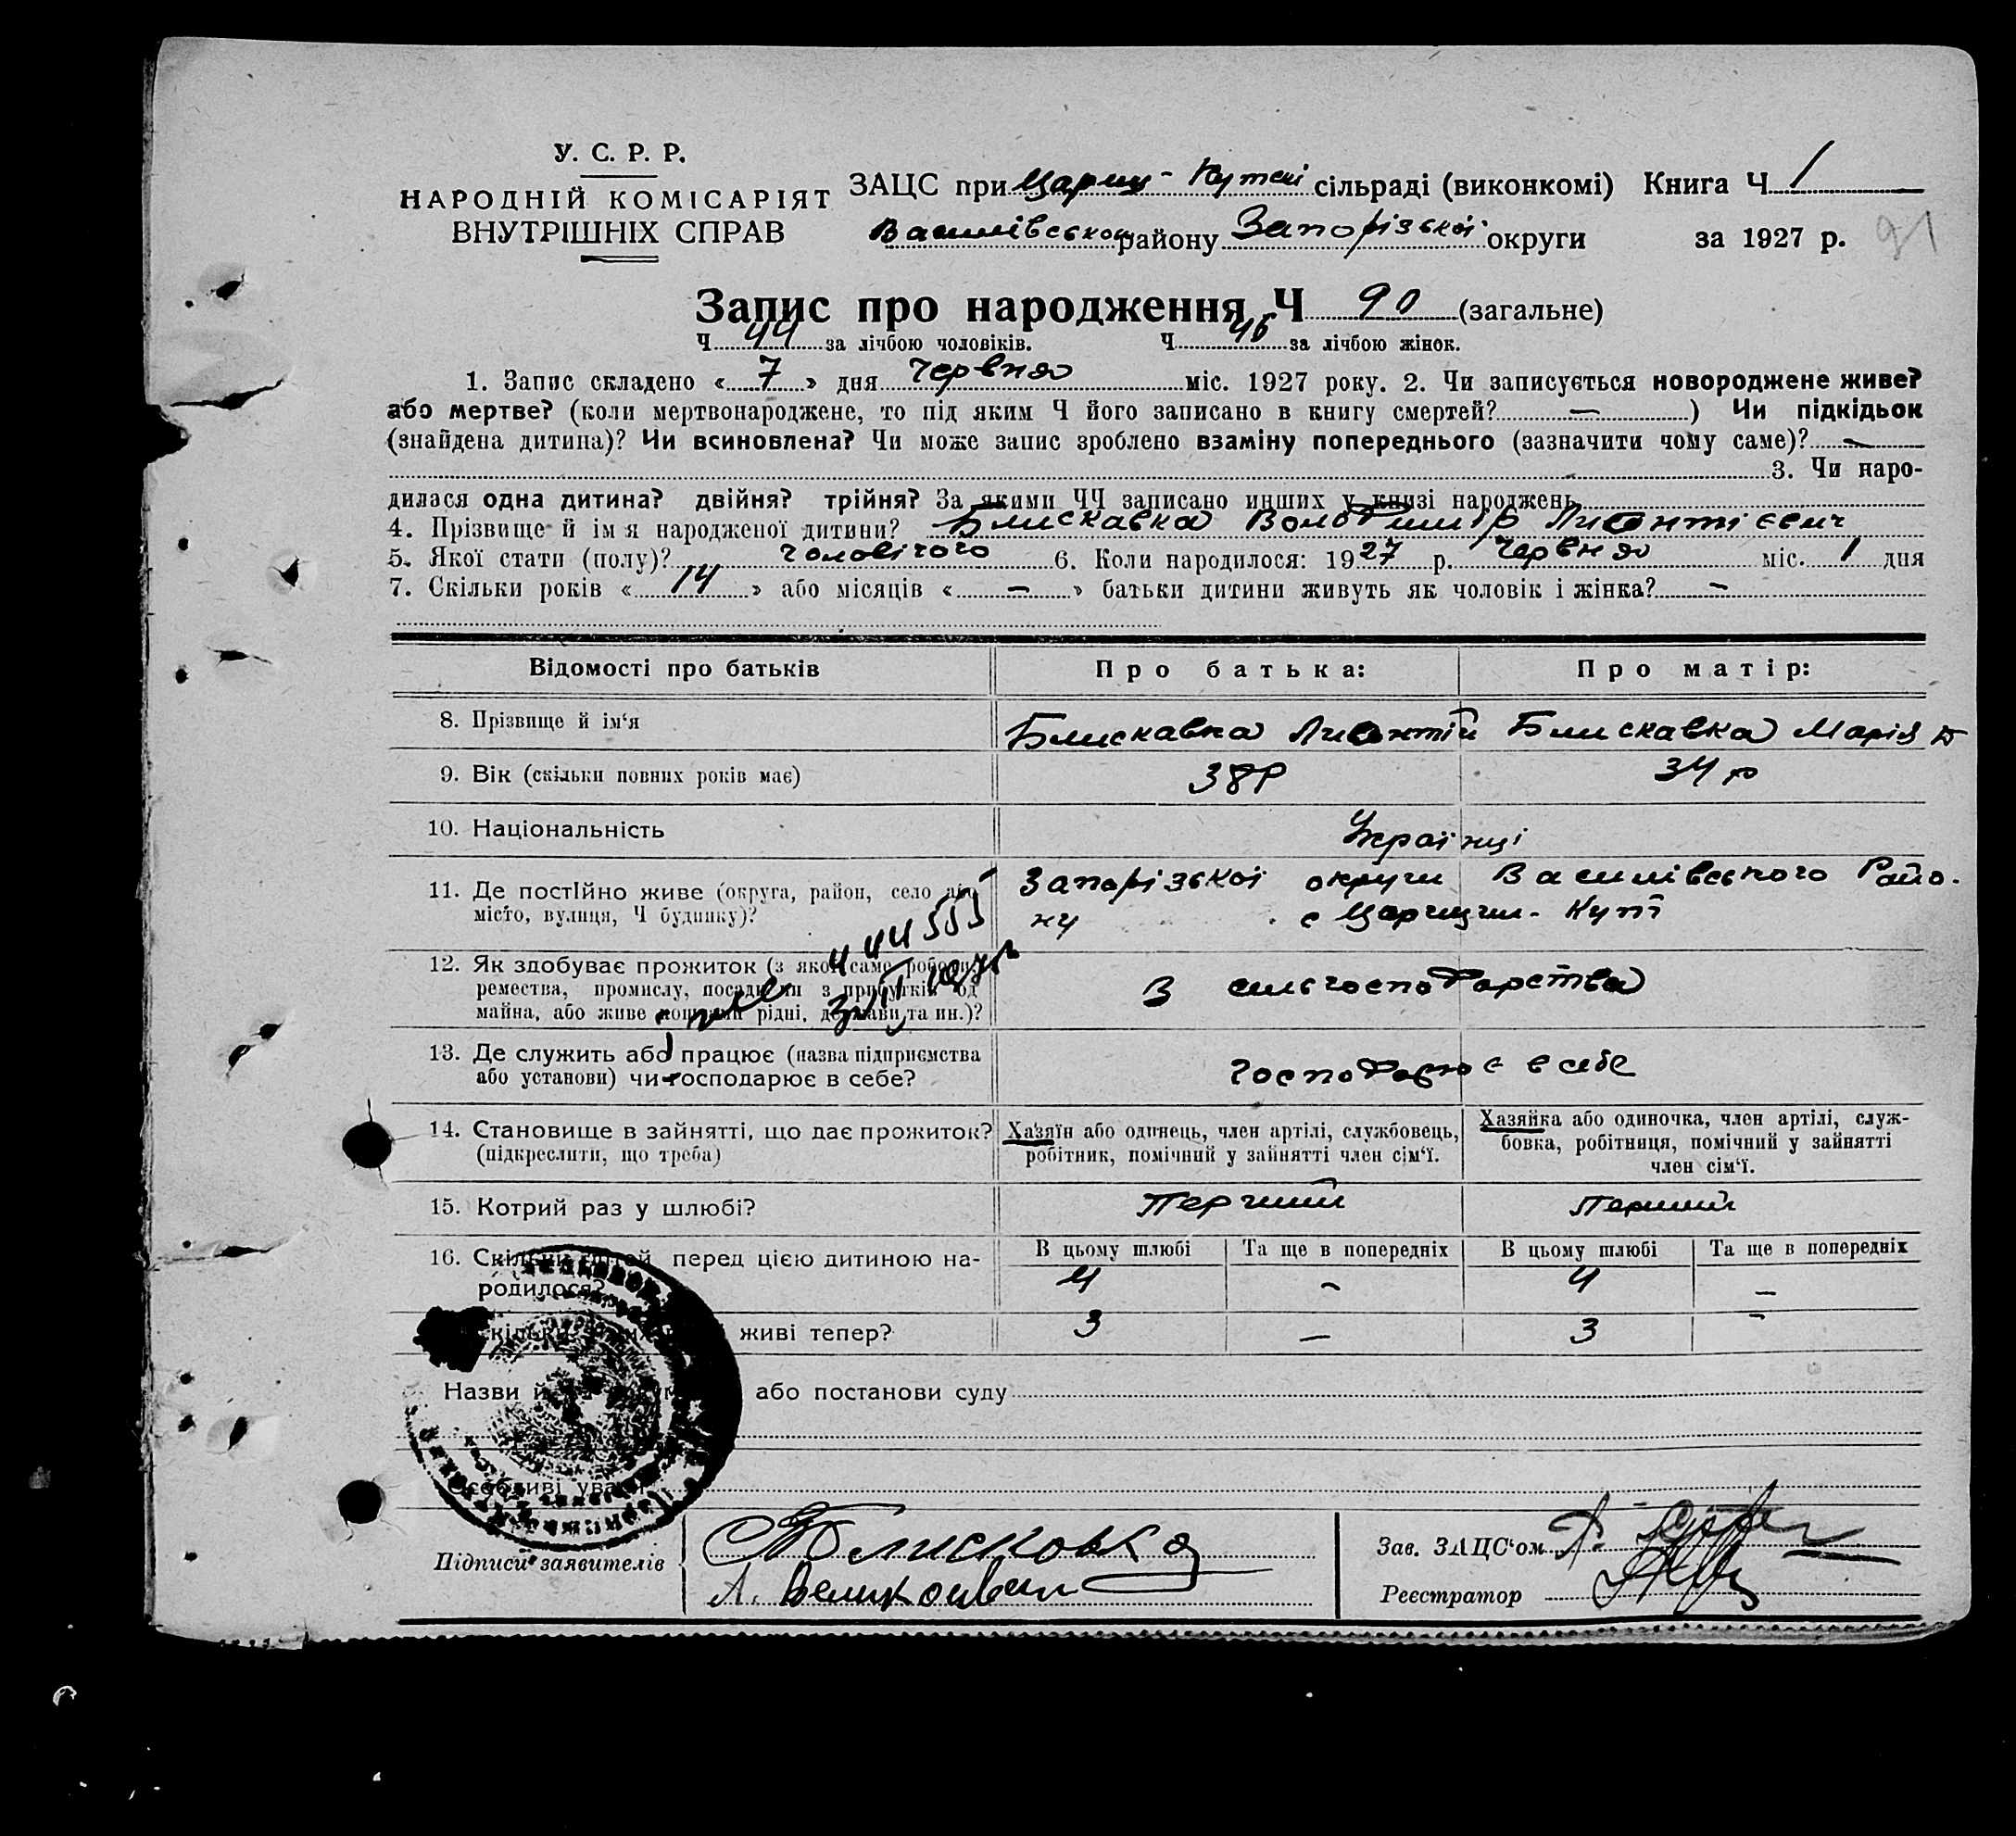 У. С. Р. Р.
НАРОДНІЙ КОМІСАРІЯТ
ВНУТРІШНІХ СПРАВ
ЗАЦС при Цариц-Кутскі сільраді (виконкомі) Книга Ч 1
Василівського району Запорізької округи за 1927 р. 91
Запис про народження Ч 90 (загальне)
Ч 44 за лічбою чоловіків. Ч 46 за лічбою жінок.
1. Запис складено « 7 » дня червня міс. 1927 року. 2. Чи записується новороджене живе?
або мертве? (коли мертвонароджене, то під яким Ч його записано в книгу смертей? — ) Чи підкідьок
(знайдена дитина)? Чи всиновлена? Чи може запис зроблено взаміну попереднього (зазначити чому саме)? —
3. Чи наро-
дилася одна дитина? двійня? трійня? За якими ЧЧ записано инших у книзі народжень
4. Прізвище й ім я народженої дитини? Блискавка Володимір Лионтієвич
5. Якої стати (полу)? чоловічого 6. Коли народилося: 1927 р. червня міс. 1 дня
7. Скільки років « 14 » або місяців « — » батьки дитини живуть як чоловік і жінка? —
Відомості про батьків Про батька: Про матір:
8. Прізвище й ім‘я Блискавка Лионтій Блискавка Марія
9. Вік (скільки повних років має) 38 р 34 р
10. Національність Українці
11. Де постійно живе (округа, район, село або Запорізької округи Василівського Райо-
місто, вулиця, Ч будинку)? ну с Царицин-Кут
12. Як здобуває прожиток (з якої саме роботи,
ремества, промислу, посади чи з прибутків од З сильгосподарства
майна, або живе коштами рідні, держави та ин.)?
13. Де служить або працює (назва підприємства
або установи) чи господарює в себе? господарює в себе
14. Становище в зайнятті, що дає прожиток?
(підкреслити, що треба)
Хазяїн або одинець, член артілі, службовець,
робітник, помічний у зайнятті член сім‘ї.
Хазяйка або одиночка, член артілі, служ-
бовка, робітниця, помічний у зайнятті
член сім‘ї.
15. Котрий раз у шлюбі? Перчший Перший
16. Скільки дітей перед цією дитиною на-
родилося?
В цьому шлюбі Та ще в попередніх В цьому шлюбі Та ще в попередніх
4 — 4 —
живі тепер? 3 — 3 —
Назви й або постанови суду
Особливі уваги
Підписи заявителів Блисковка
А.
Зав. ЗАЦС‘ом
Реєстратор